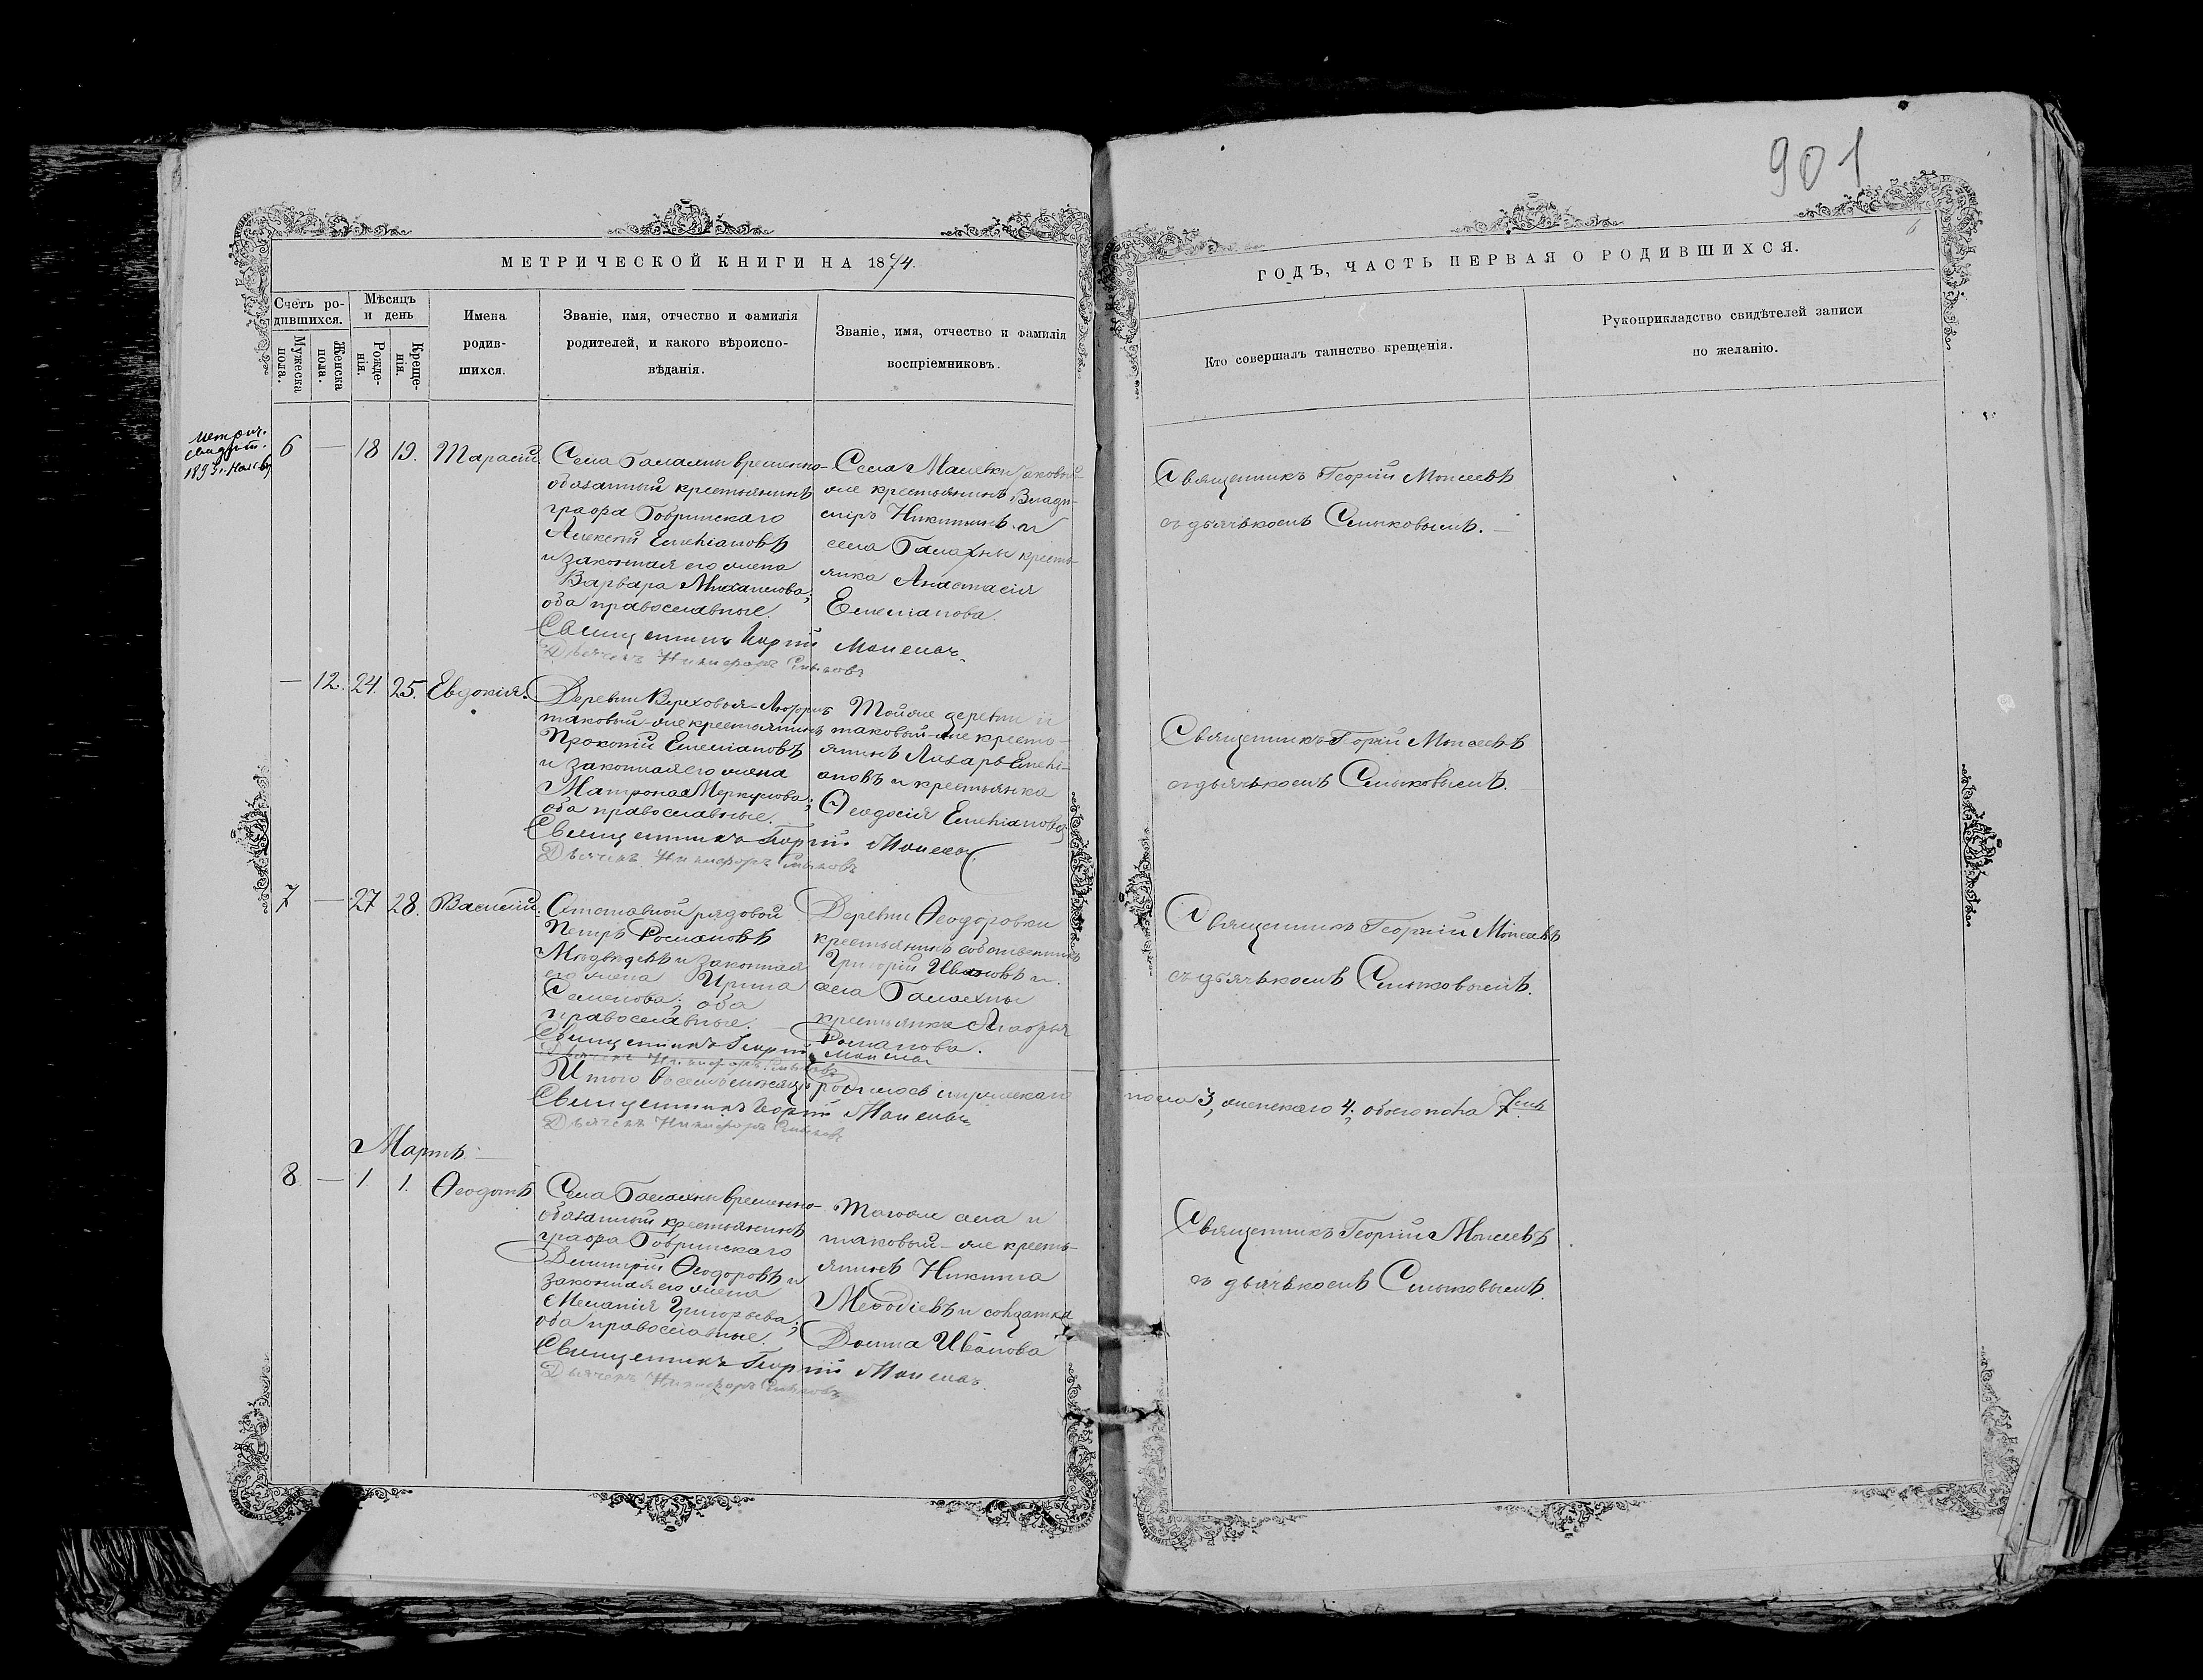 901
6
МЕТРИЧЕСКОЙ КНИГИ НА 1874.
ГОДЪ, ЧАСТЬ ПЕРВАЯ О РОДИВШИХСЯ.
Счетъ ро-
дившихся.
Мужеска
пола.
Женска
пола.
Мѣсяцъ
и день
Рожде-
нія.
Креще-
нія.
Имена
родив-
шихся.
Званіе, имя, отчество и фамилія
родителей, и какого вѣроиспо-
вѣданія.
Званіе, имя, отчество и фамилія
воспріемниковъ.
Кто совершалъ таинство крещенія.
Рукоприкладство свидѣтелей записи
по желанію.
метрич.
свидѣт.
6 — 18 19. Тарасій.
Села Балахны временно-
обязанный крестьянинъ
графа Бобринскаго
Алексѣй Емеліановъ
и законная его жена
Варвара Михаилова;
оба православные.
Священникъ Георгій Моисеевъ
Дьячекъ Никифоръ Смыковъ
Села Малевки таковый-
же крестьянинъ Влади-
міръ Никитинъ и
села Балахны кресть-
янка Анастасія
Емеліанова.
Священникъ Георгій Моисеевъ
съ дьячькомъ Смыковымъ.
— 12. 24. 25. Евдокія.
Деревни Верховья-Люторичь
таковый-же крестьянинъ
Прокопій Емеліановъ
и законная его жена
Матрона Меркулова;
оба православные.
Священникъ Георгій Моисеевъ
Дьячекъ Никифоръ Смыковъ
Той же деревни и
таковый-же кресть-
янинъ Лазарь Емелі-
ановъ и крестьянка
Ѳеодосія Емеліанова
Священникъ Георгій Моисеевъ
съ дьячькомъ Смыковымъ.
7 — 27 28. Василій.
Отставной рядовой
Петръ Романовъ
Медвѣдевъ и законная
его жена Ирина
Семенова; оба
православные.
Священникъ Георгій Моисеевъ
Дьячекъ Никифоръ Смыковъ
Деревни Ѳеодоровки
крестьянинъ собственникъ
Григорій Ивановъ и
села Балахны
крестьянка Марья
Романова.
Священникъ Георгій Моисеевъ
съ дьячькомъ Смыковымъ.
Итого въ семъ мѣсяцѣ родилось мужескаго пола 3, женскаго 4; обоего пола 7мь
Священникъ Георгій Моисеевъ
Дьячекъ Никифоръ Смыковъ
Мартъ.
8 — 1. 1. Ѳеодотъ
Села Балахны временно-
обязанный крестьянинъ
графа Бобринскаго
Димитрій Ѳеодоровъ и
законная его жена
Меланія Григорьева;
оба православные.
Священникъ Георгій Моисеевъ
Дьячекъ Никифоръ Смыковъ
Тогоже села и
таковый-же кресть-
янинъ Никита
Меѳодіевъ и солдатка
Домна Иванова
Священникъ Георгій Моисеевъ
съ дьячькомъ Смыковымъ.